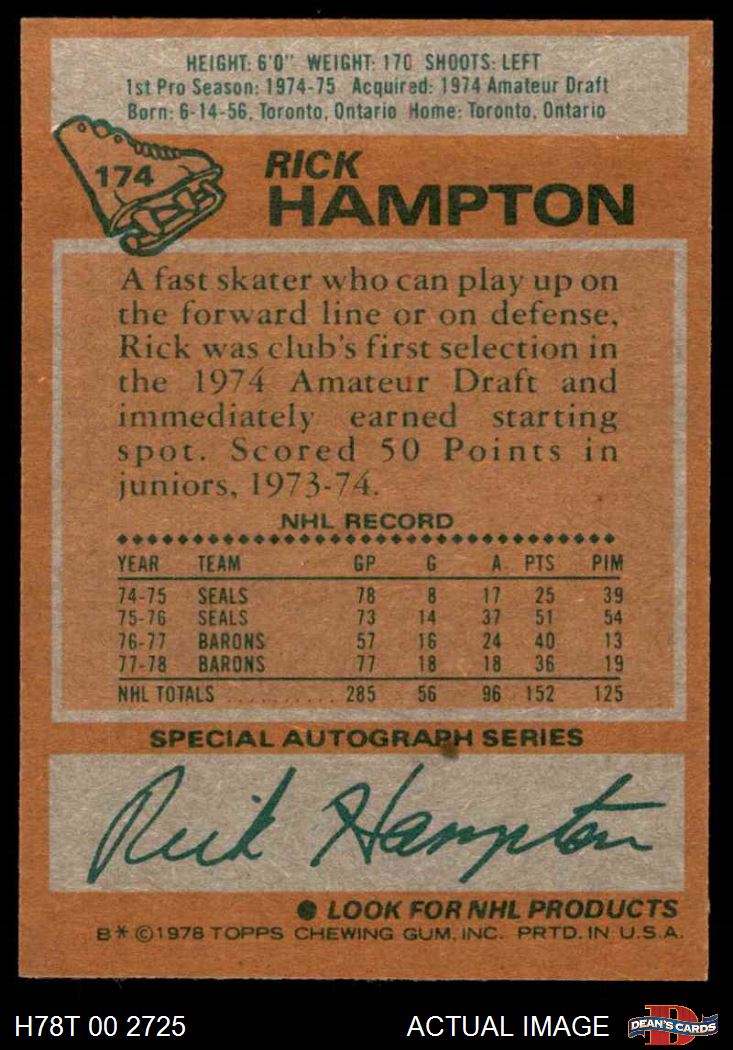 HEIGHT: 6'0" WEIGHT: 170 SHOOTS: LEFT
1st Pro Season: 1974-75 Acquired: 1974 Amateur Draft
Born: 6-14-56, Toronto, Ontario Home: Toronto, Ontario
174
RICK
HAMPTON
A fast skater who can play up on
the forward line or on defense,
Rick was club's first selection in
the 1974 Amateur Draft and
immediately earned starting
spot. Scored 50 Points in
juniors, 1973-74.
NHL RECORD
YEAR TEAM GP G A PTS PIM
74-75 SEALS 78 8 17 25 39
75-76 SEALS 73 14 37 51 54
76-77 BARONS 57 16 24 40 13
77-78 BARONS 77 18 18 36 19
NHL TOTALS ........... 285 56 96 152 125
SPECIAL AUTOGRAPH SERIES
Rick Hampton
● LOOK FOR NHL PRODUCTS
B* ©1978 TOPPS CHEWING GUM, INC. PRTD. IN U.S.A.
H78T 00 2725 ACTUAL IMAGE D DEAN'S CARDS